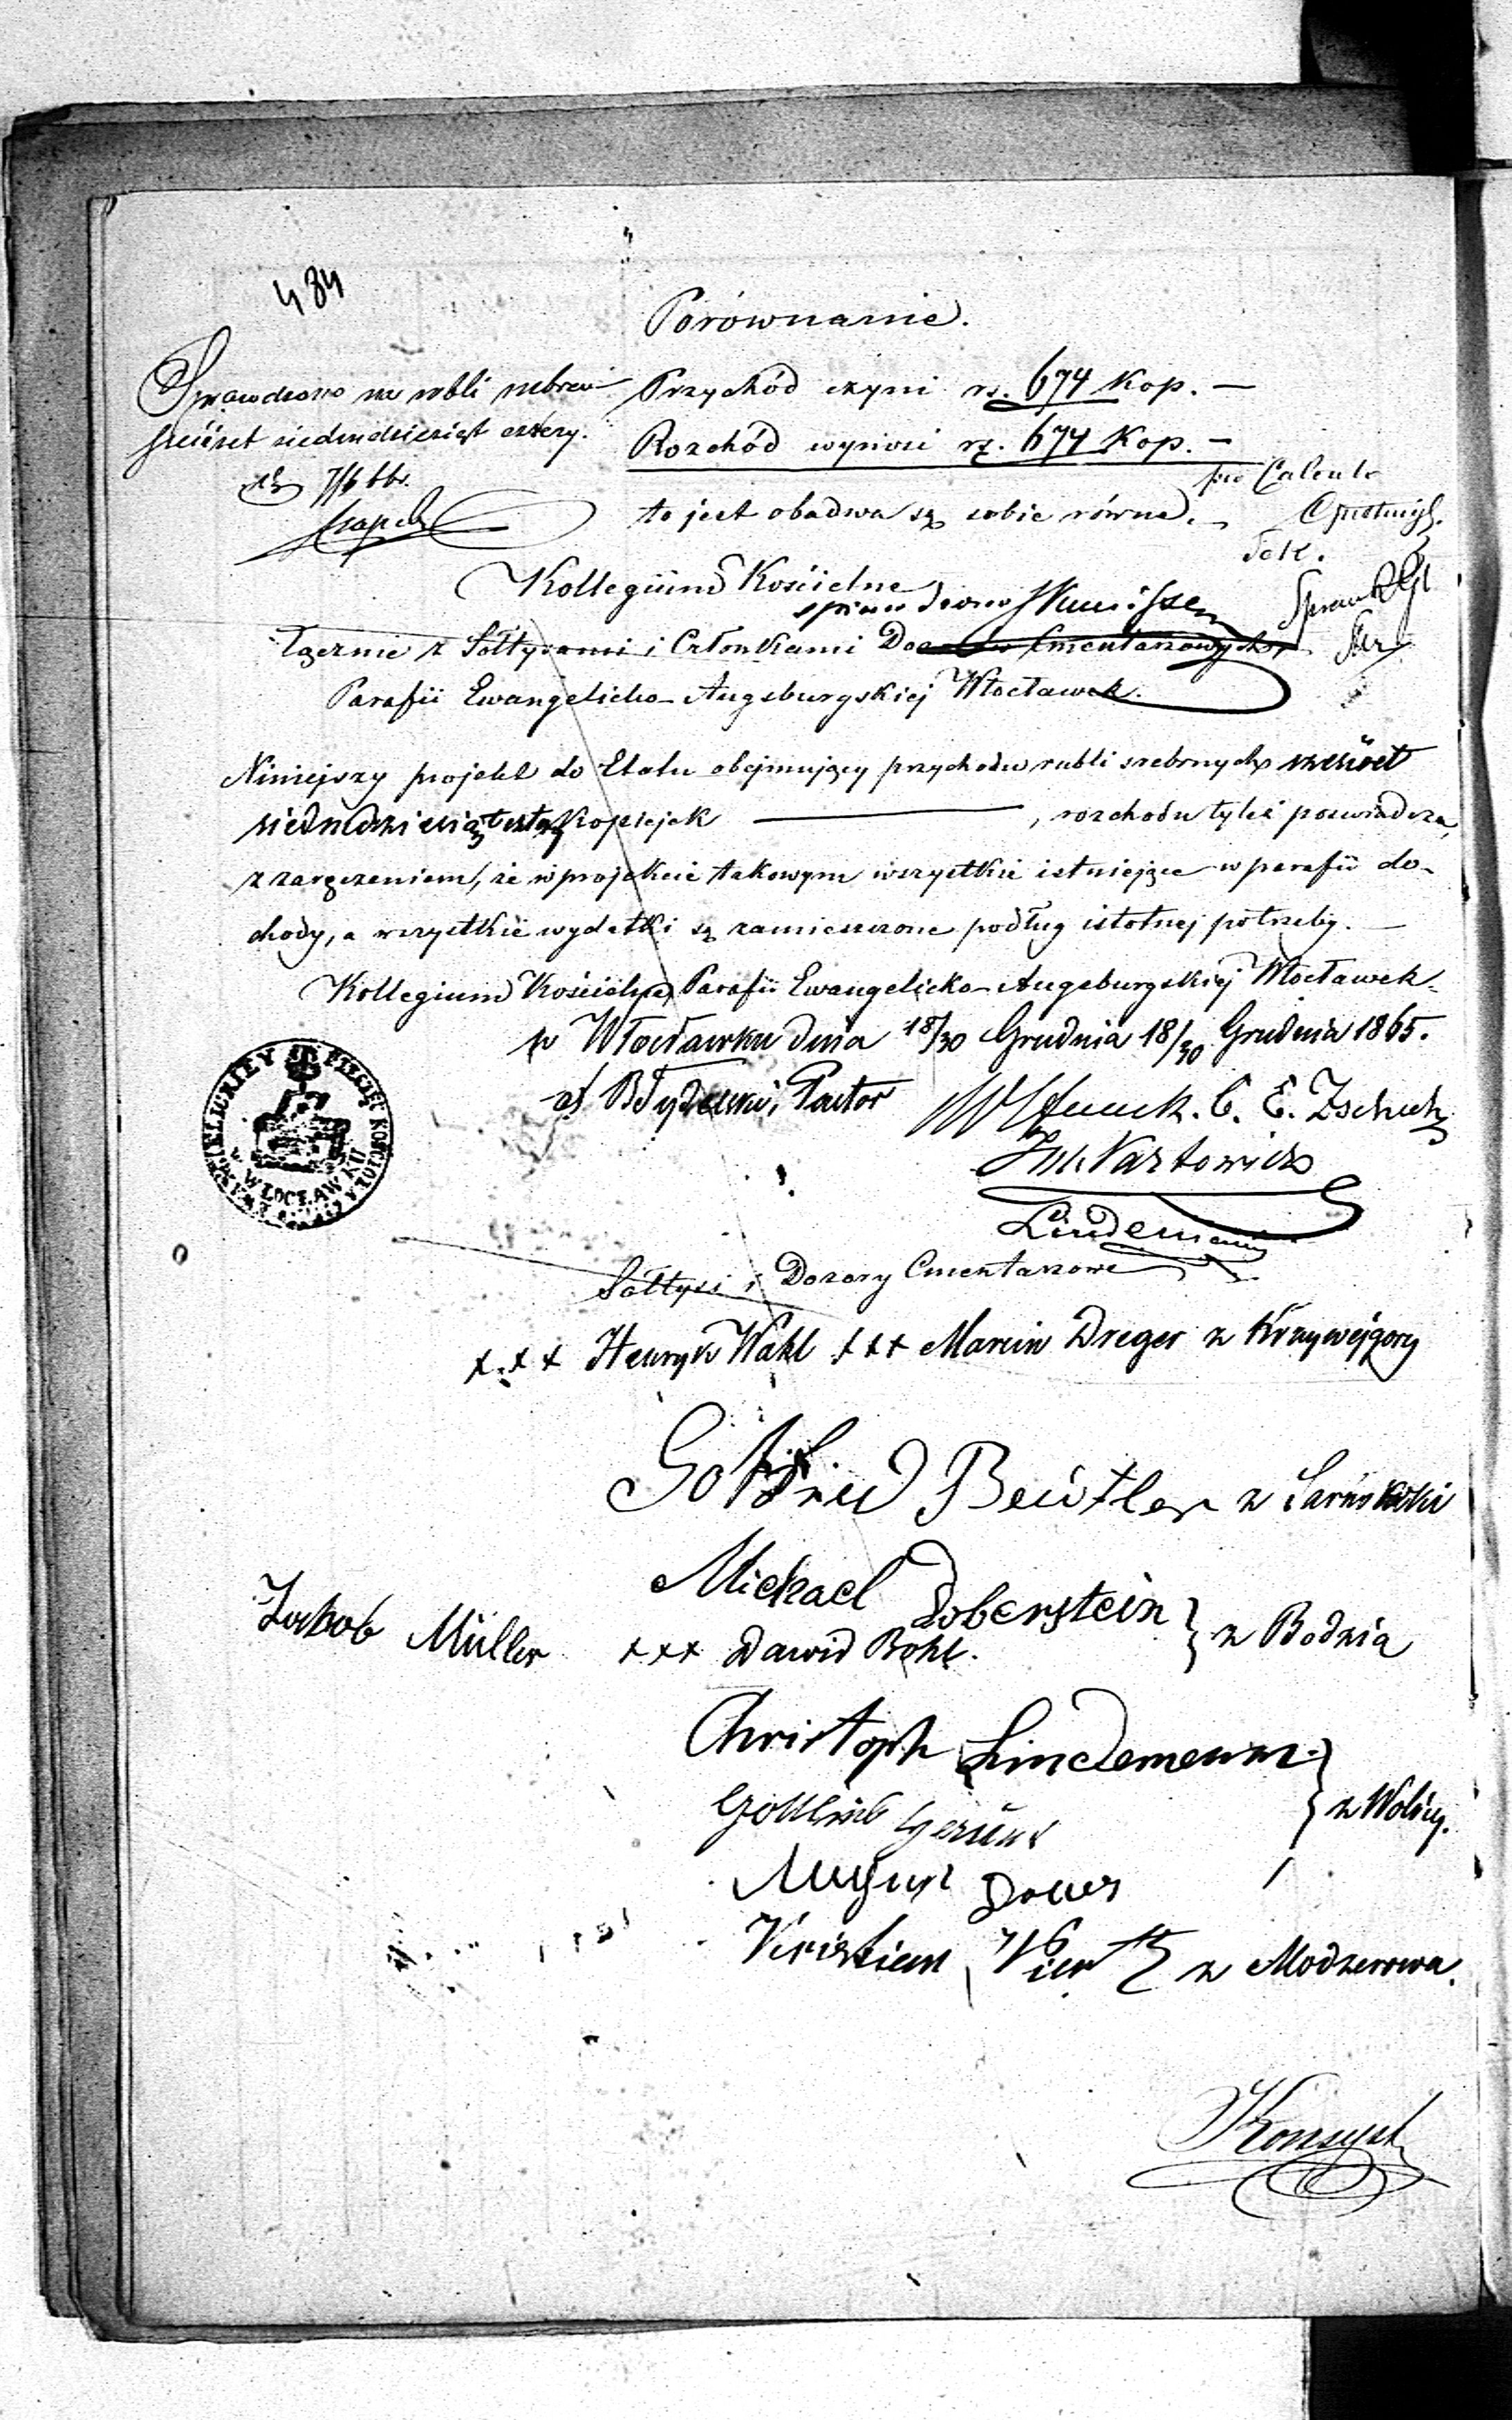 484
Porównanie.
Sprawdzono na rubli srebrem
sześćset siedmdziesiąt cztery.
Przychód czyni rs. 674 Kop. —
Rozchód wynosi rs. 674 Kop. —
to jest obadwa są sobie równe.
pro Calculo
Kollegium Kościelne
łącznie z Sołtysami i Członkami Cmentarzowych
Parafii Ewangelicko-Augsburgskiej Włocławek.
Niniejszy projekt do Etatu obejmujący przychodu rubli srebrnych sześćset
siedmdziesiąt cztery Kopiejek ———, rozchodu tyleż poświadcza,
z zaręczeniem, że w projekcie takowym wszystkie istniejące w parafii do-
chody, a wszystkie wydatki są zamieszczone podług istotnej potrzeby. —
Kollegium Kościelne Parafii Ewangelicko-Augsburgskiej Włocławek
w Włocławku dnia 18/30 Grudnia 18/30 Grudnia 1865.
Pastor
C. E. Zschuch
Lindemann
Sołtysi i Dozory Cmentarzowe
xxx Henryk Wahl xxx Marcin Dreger z Krzywejgory
Gotfried Beutler z
Michael Doberstein } z Bodzia
Jackob Müller
xxx Dawid Bohl.
Christoph Lindemann } z Wolicy.
Gottlieb
August
Kristian z Modzerowa.